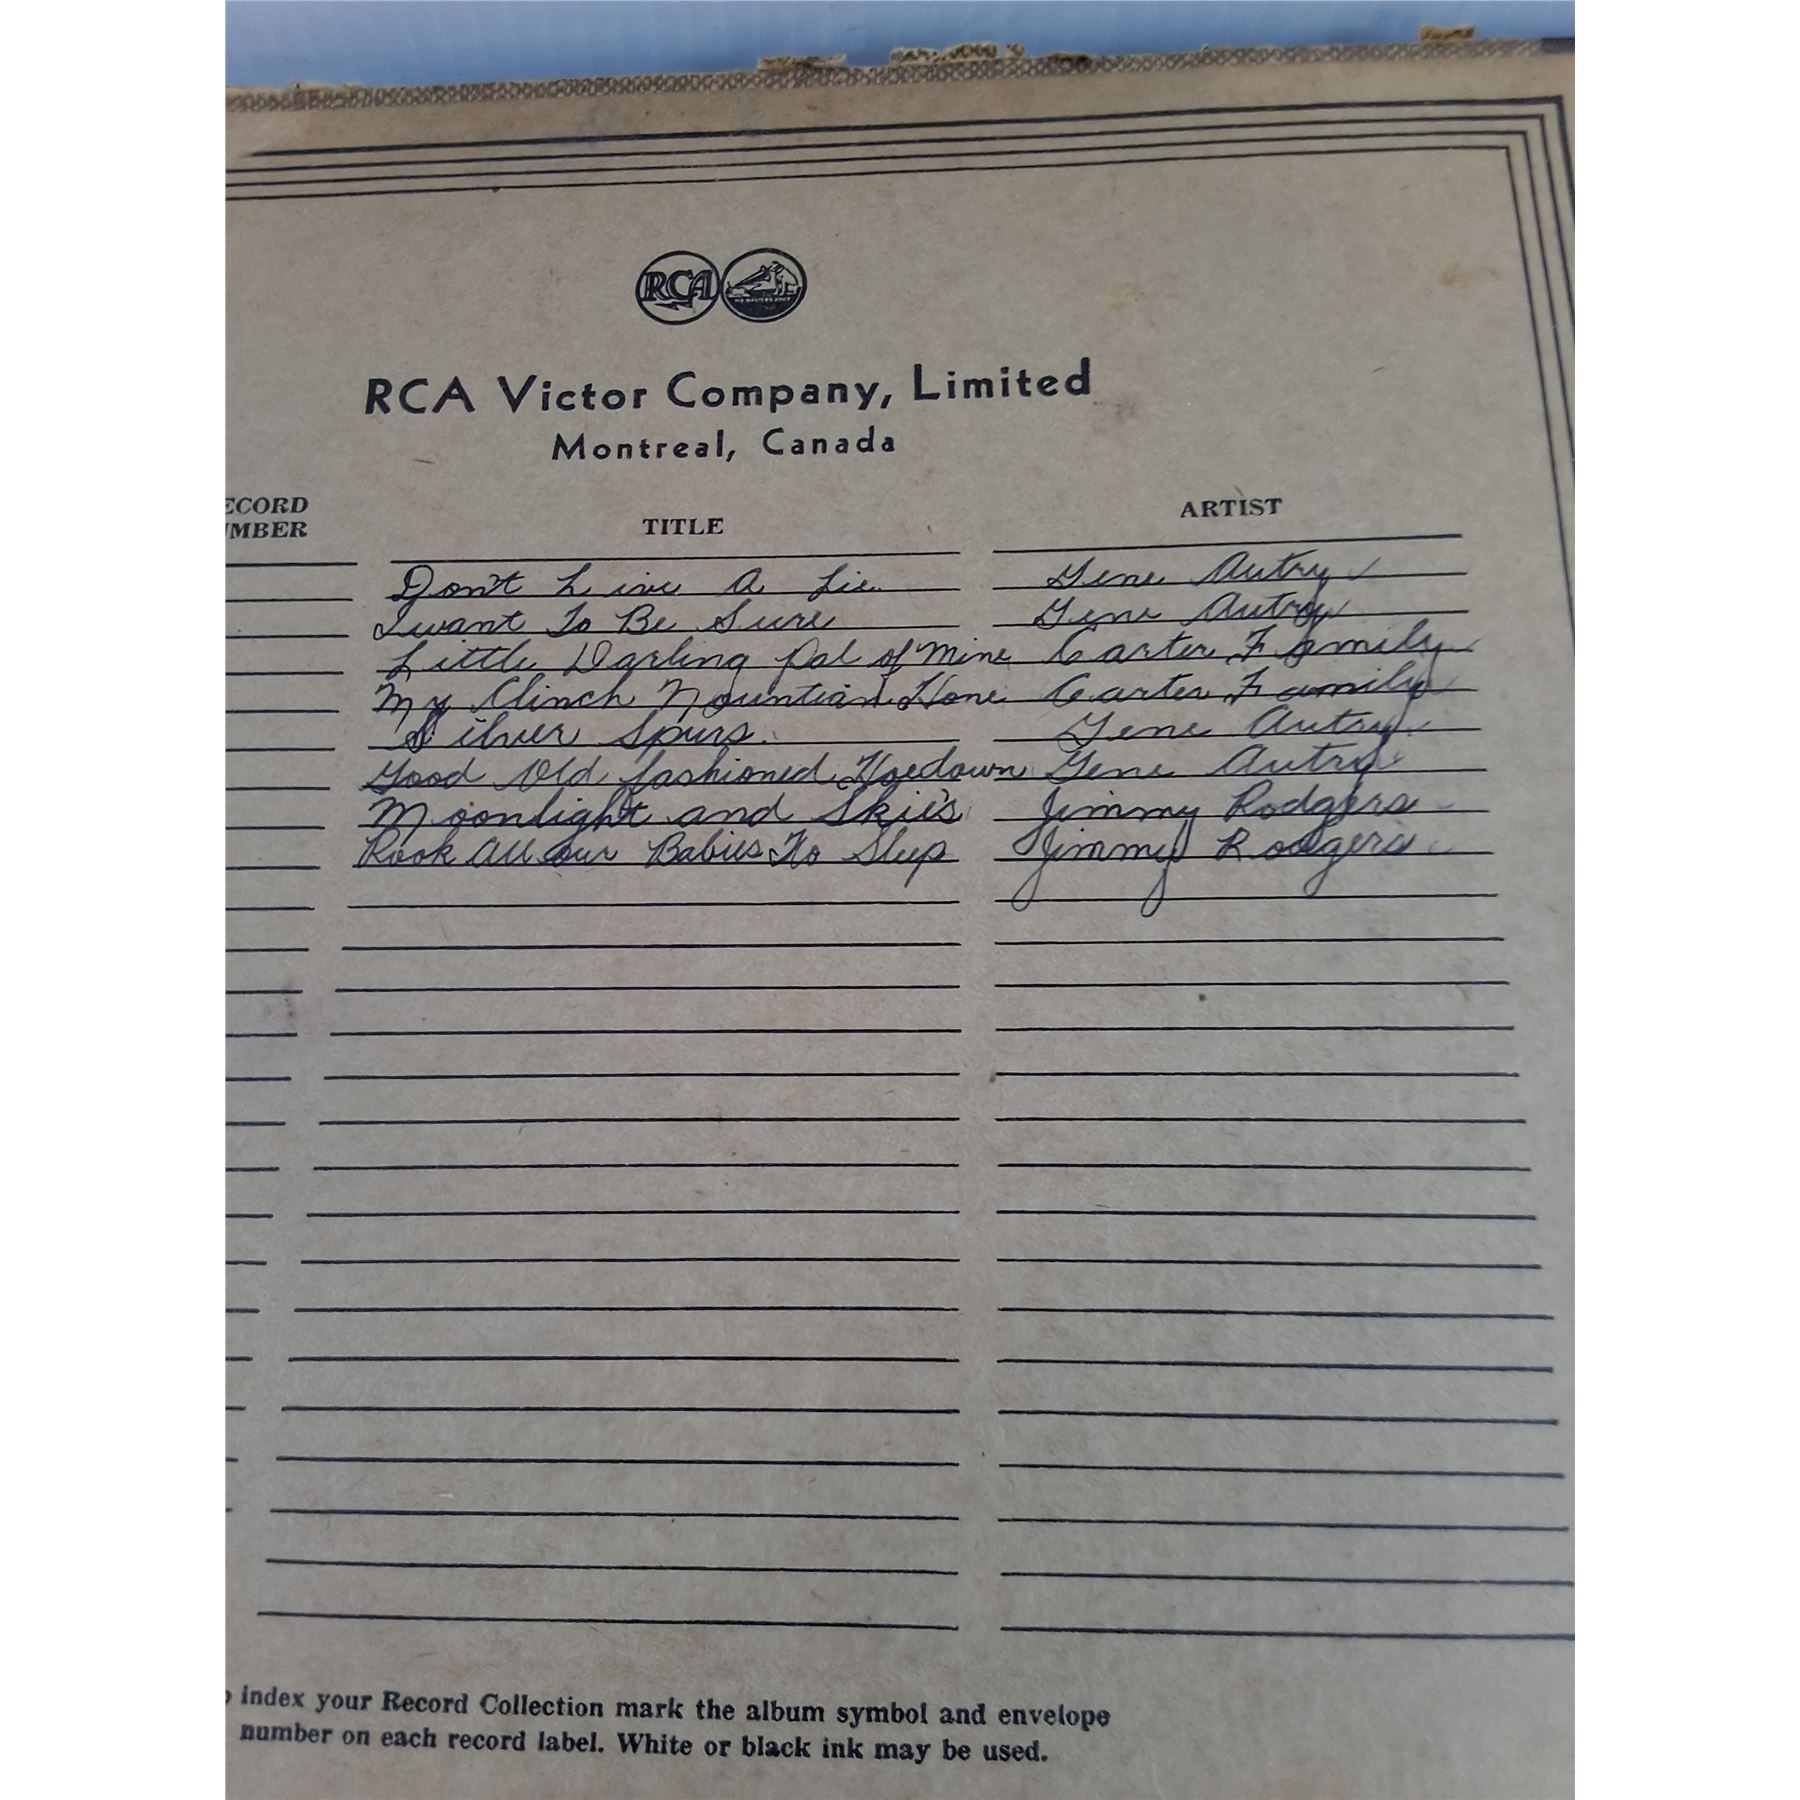 RCA
RCA Victor Company, Limited
Montreal, Canada
ECORD
MBER
TITLE
ARTIST
Don't Live A Lie. Gene Autry
I want To Be Sure Gene Autry
Little Darling Pal of Mine Carter Family
My Clinch Mountian Home Carter Family
Silver Spurs. Gene Autry
Good Old fashioned Hoedown Gene Autry
Moonlight and Skies Jimmy Rodgers
Rock All Our Babies To Sleep Jimmy Rodgers
index your Record Collection mark the album symbol and envelope
number on each record label. White or black ink may be used.